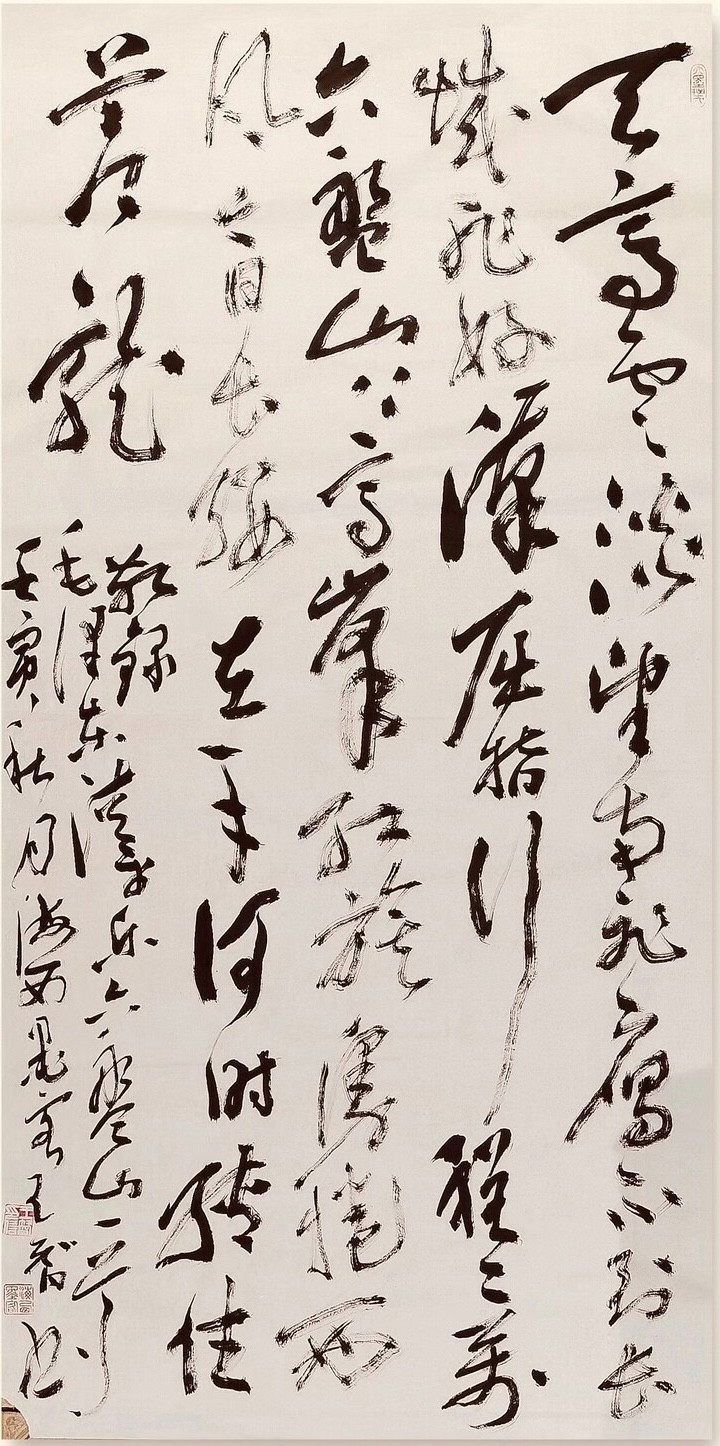 天高云淡望南飞雁不到长
城非好漢屈指行程二萬
六盤山上高峰红旗漫捲西
风今日长缨在手何时缚住
苍龍
敬錄
毛澤东清平乐六盤山一首
壬寅秋月海西墨客王智书